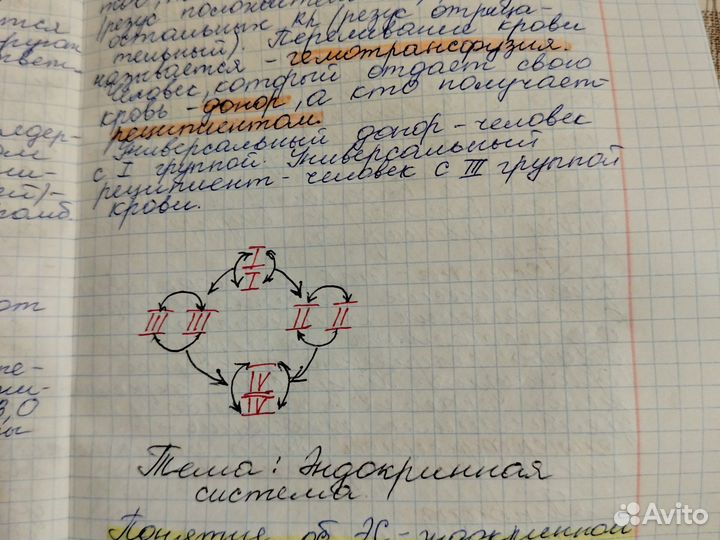 резус положител
остальных кр (резус отрица-
тельный). Переливание крови
называется - гемотрансфузия.
Человек, который отдает свою
кровь - донор, а кто получает-
реципиентом.
Универсальный донор - человек
с I группой. Универсальный
реципиент - человек с III группой
крови.
I
I
III III II II
IV
IV
Тема: Эндокринная
система
Понятие об ЭС - эндокринной
Avito